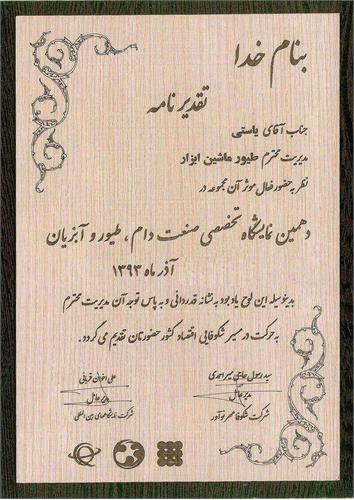 بنام خدا
تقدیر نامه
جناب آقای یاستی
مدیریت محترم طیور ماشین ابزار
نظر به حضور فعال موثر آن مجموعه در
دهمین نمایشگاه تخصصی صنعت دام ، طیور و آبزیان
آذر ماه ۱۳۹۳
بدینوسیله این لوح یادبود به نشانه قدردانی و به پاس توجه آن مدیریت محترم
به حرکت در مسیر شکوفایی اقتصاد کشور حضورتان تقدیم می گردد.
سید رسول حاجی میراحمدی
مدیر عامل
شرکت شکوفا مهر نوآور
علی اخوان قربانی
مدیر عامل
شرکت نمایشگاههای بین المللی